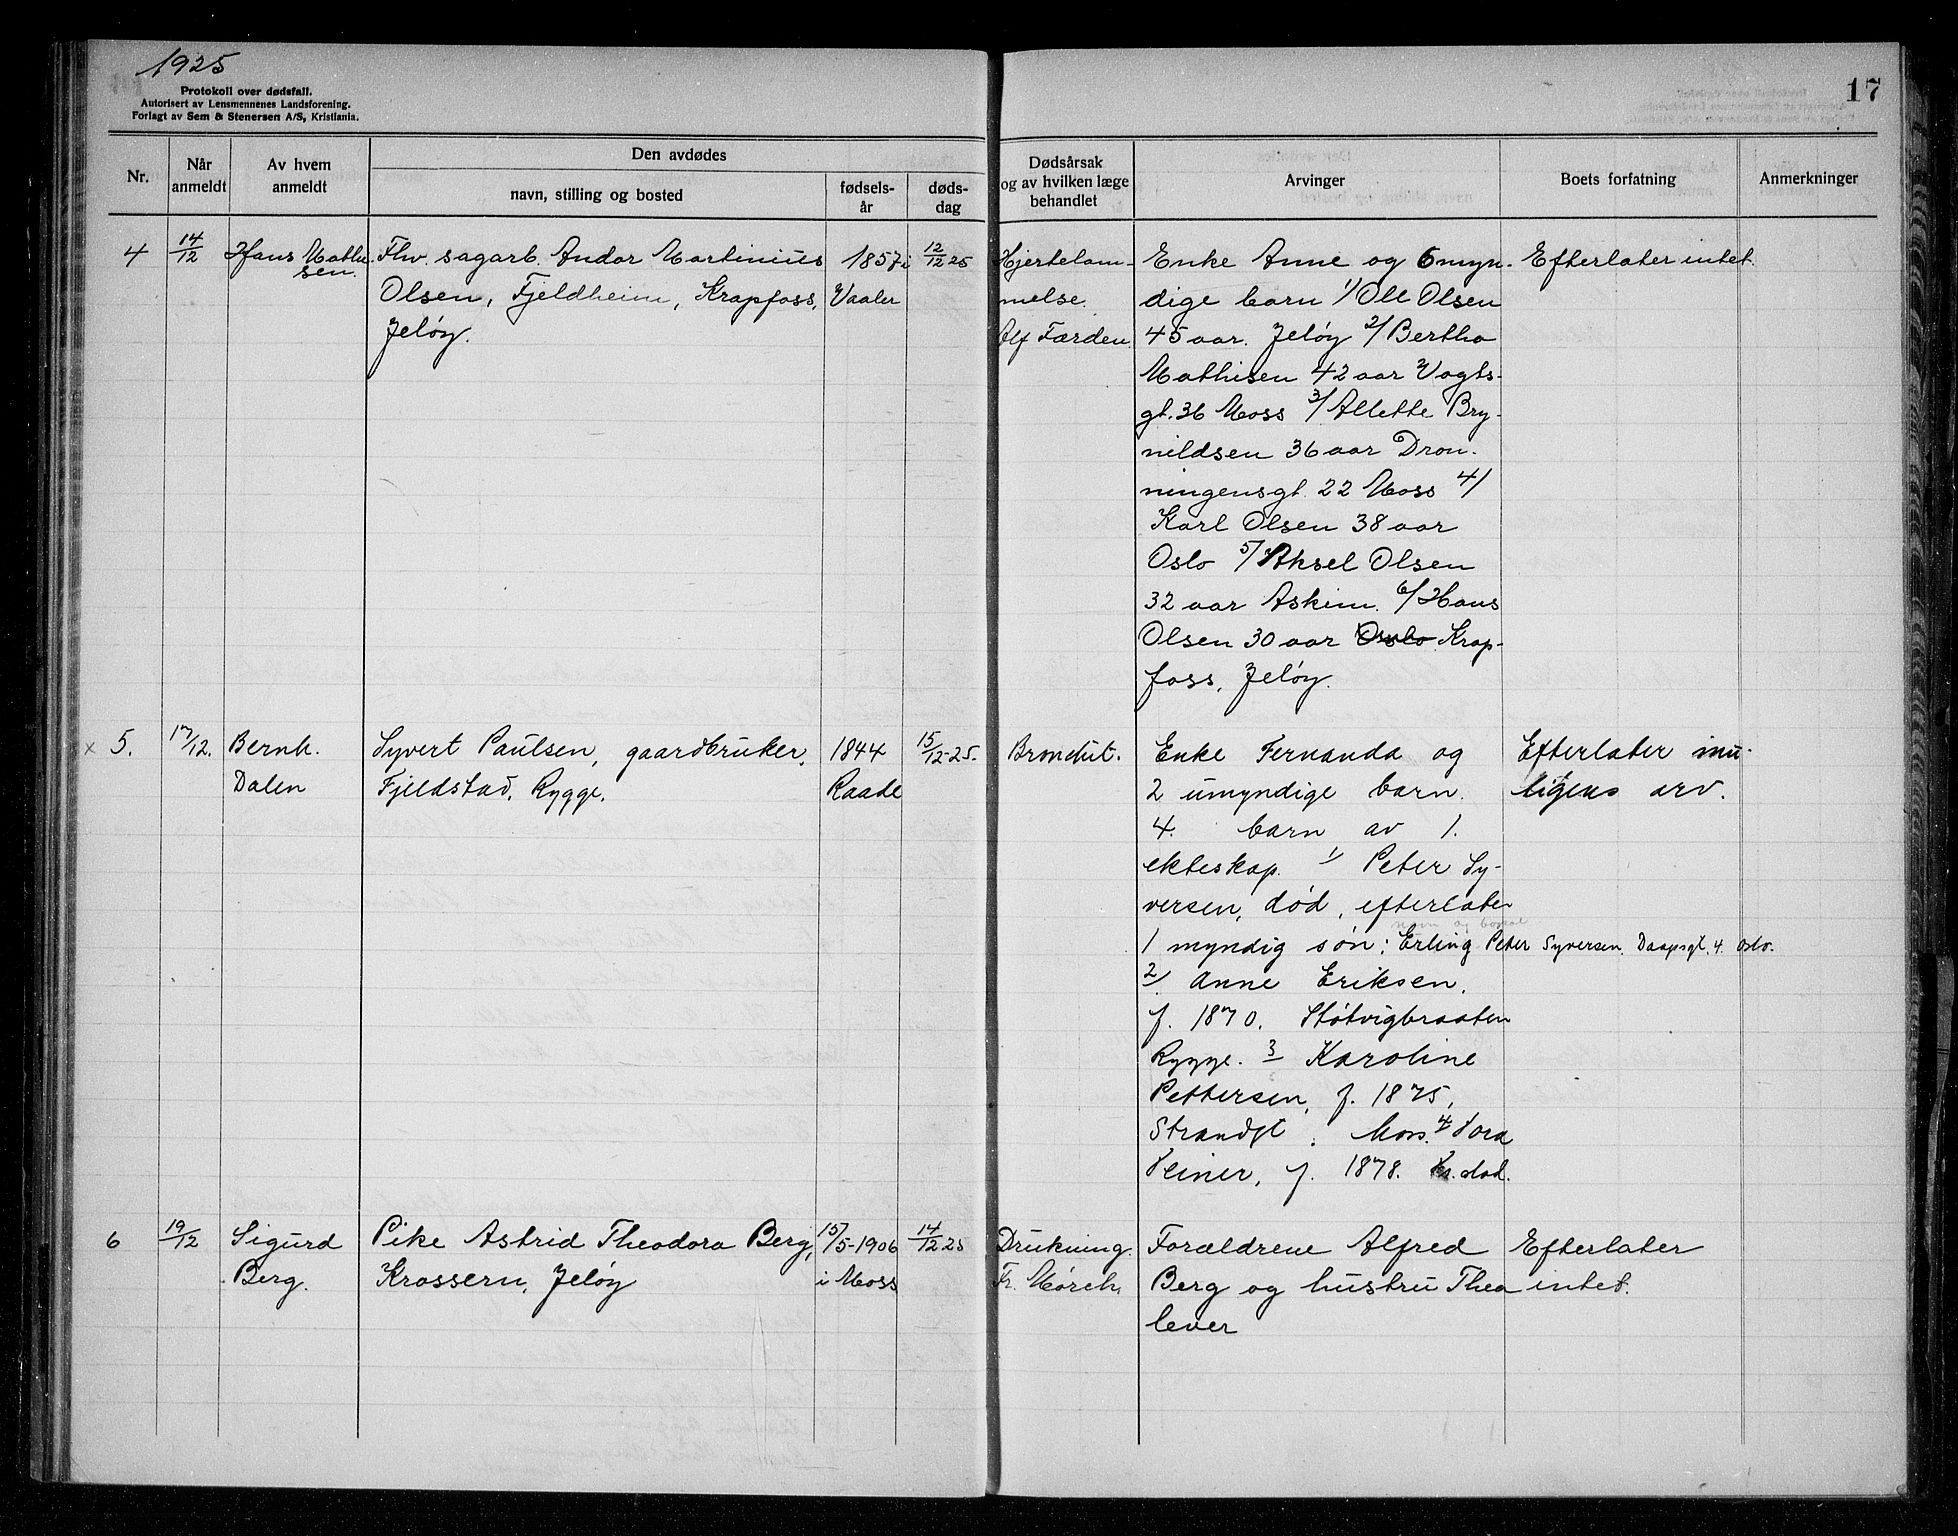 1925
Protokoll over dødsfall.
Autorisert av Lensmennenes Landsforening.
Forlagt av Sem & Stenersen A/S, Kristiania.
17
Nr.
Når anmeldt
Av hvem anmeldt
Den avdødes
navn, stilling og bosted
fødsels-år
døds-dag
Dødsårsak og av hvilken læge behandlet
Arvinger
Boets forfatning
Anmerkninger
4
14/12
Hans Mathi-
sen.
Fhv. sagarb. Andor Martinius
Olsen, Fjeldheim, Krapfoss,
Jeløy.
1857 i
Vaaler
12/12 25
Hjertelam-
melse.
Alf Færden.
Enke Anne og 6 myn-
dige barn 1/ Ole Olsen
45 aar. Jeløy 2/ Bertha
Mathisen 42 aar Vogts-
gt. 36 Moss 3/ Allette Bry-
nildsen 36 aar Dron-
ningensgt. 22 Moss 4/
Karl Olsen 38 aar
Oslo 5/ Aksel Olsen
32 aar Askim. 6/ Hans
Olsen 30 aar Oslo Krap-
foss, Jeløy.
Efterlater intet.
x 5.
17/12.
Bernh.
Dalen
Syvert Paulsen, gaardbruker,
Fjeldstad, Rygge.
1844
Raade
15/12-25.
Bronchit.
Enke Fernanda og
2 umyndige barn.
4. barn av 1.
ekteskap. 1/ Peter Sy-
versen, død, efterlater
navn og bopæl
1 myndig søn: Erling Peter Syversen. Daapsgt. 4. Oslo.
2/. Anne Eriksen,
f. 1870. Støtvigbraaten
Rygge. 3 Karoline
Pettersen, f. 1875,
Strandgt. Moss. 4/ Tora
Teiner, f. 1878. død.
Efterlater mu-
ligens arv.
6
19/12
Sigurd
Berg.
Pike Astrid Theodora Berg,
Krossern, Jeløy
15/5-1906
i Moss
14/12 25
Drukning.
Fr. Mørch,
Forældrene Alfred
Berg og hustru Thea
lever
Efterlater
intet.